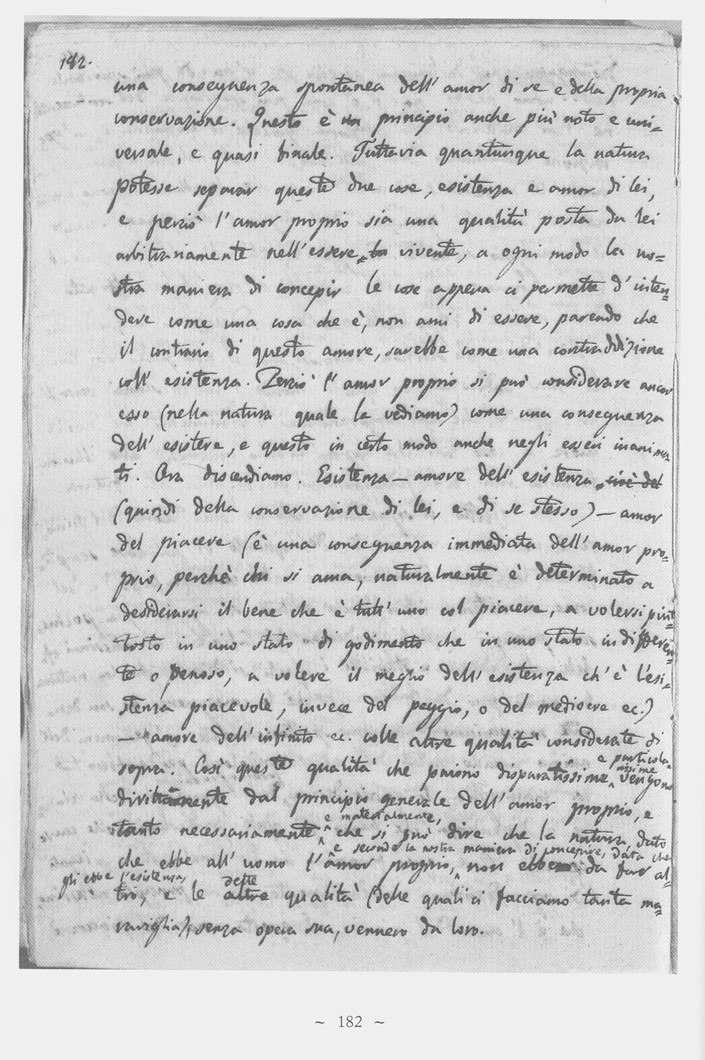 182.
una conseguenza spontanea dell'amor di se e della propria
conservazione. Questo è un principio anche più noto e uni-
versale, e quasi finale. Tuttavia quantunque la natura
potesse separar queste due cose, esistenza e amor di lei,
e perciò l'amor proprio sia una qualità posta da lei
arbitrariamente nell'essere vivente, a ogni modo la no-
stra maniera di concepir le cose appena ci permette d'inten-
dere come una cosa che è, non ami di essere, parendo che
il contrario di questo amore, sarebbe come una contraddizione
coll'esistenza. Perciò l'amor proprio si può considerare ancor
esso (nella natura quale la vediamo) come una conseguenza
dell'esistere, e questo in certo modo anche negli esseri inanima
ti. Ora discendiamo. Esistenza - amore dell'esistenza, cioè del
(quindi della conservazione di lei, e di se stesso) - amor
del piacere (è una conseguenza immediata dell'amor pro-
prio, perchè chi si ama, naturalmente è determinato a
desiderarsi il bene che è tutt'uno col piacere, a volersi piut-
tosto in uno stato di godimento che in uno stato indifferen-
te o penoso, a volere il meglio dell'esistenza ch'è l'esi-
stenza piacevole, invece del peggio, o del mediocre ec.)
- amore dell'infinito ec. colle altre qualità considerate di
sopra. Così queste qualità che paiono disparatissime, e particolarissime vengono
dirittamente dal principio generale dell'amor proprio, e
tanto necessariamente e materialmente, che si può dire che la natura, dato
che ebbe all'uomo l'amor proprio, e secondo la nostra maniera di concepire, data che
gli ebbe l'esistenza, non ebbe da far al-
tro, e le dette altre qualità (delle quali ci facciamo tanta ma-
raviglia), senza opera sua, vennero da loro.
~ 182 ~